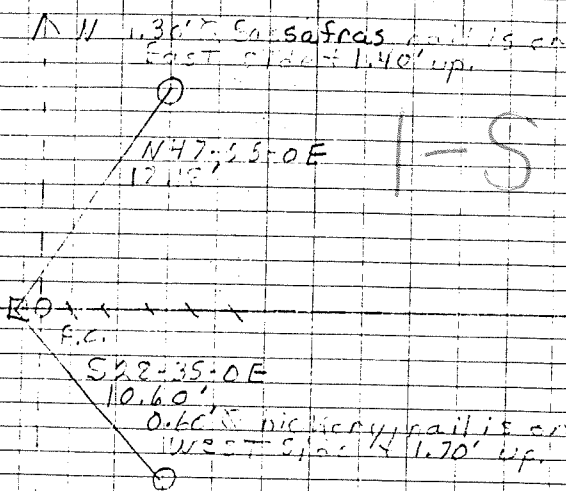 N 1.30' Sassafras nail is on
East side & 1.40' up.
N47-55-0E
1-S
F.C.
S22-35-0E
10.60'
hickory, nail is on
West side & 1.70' up.